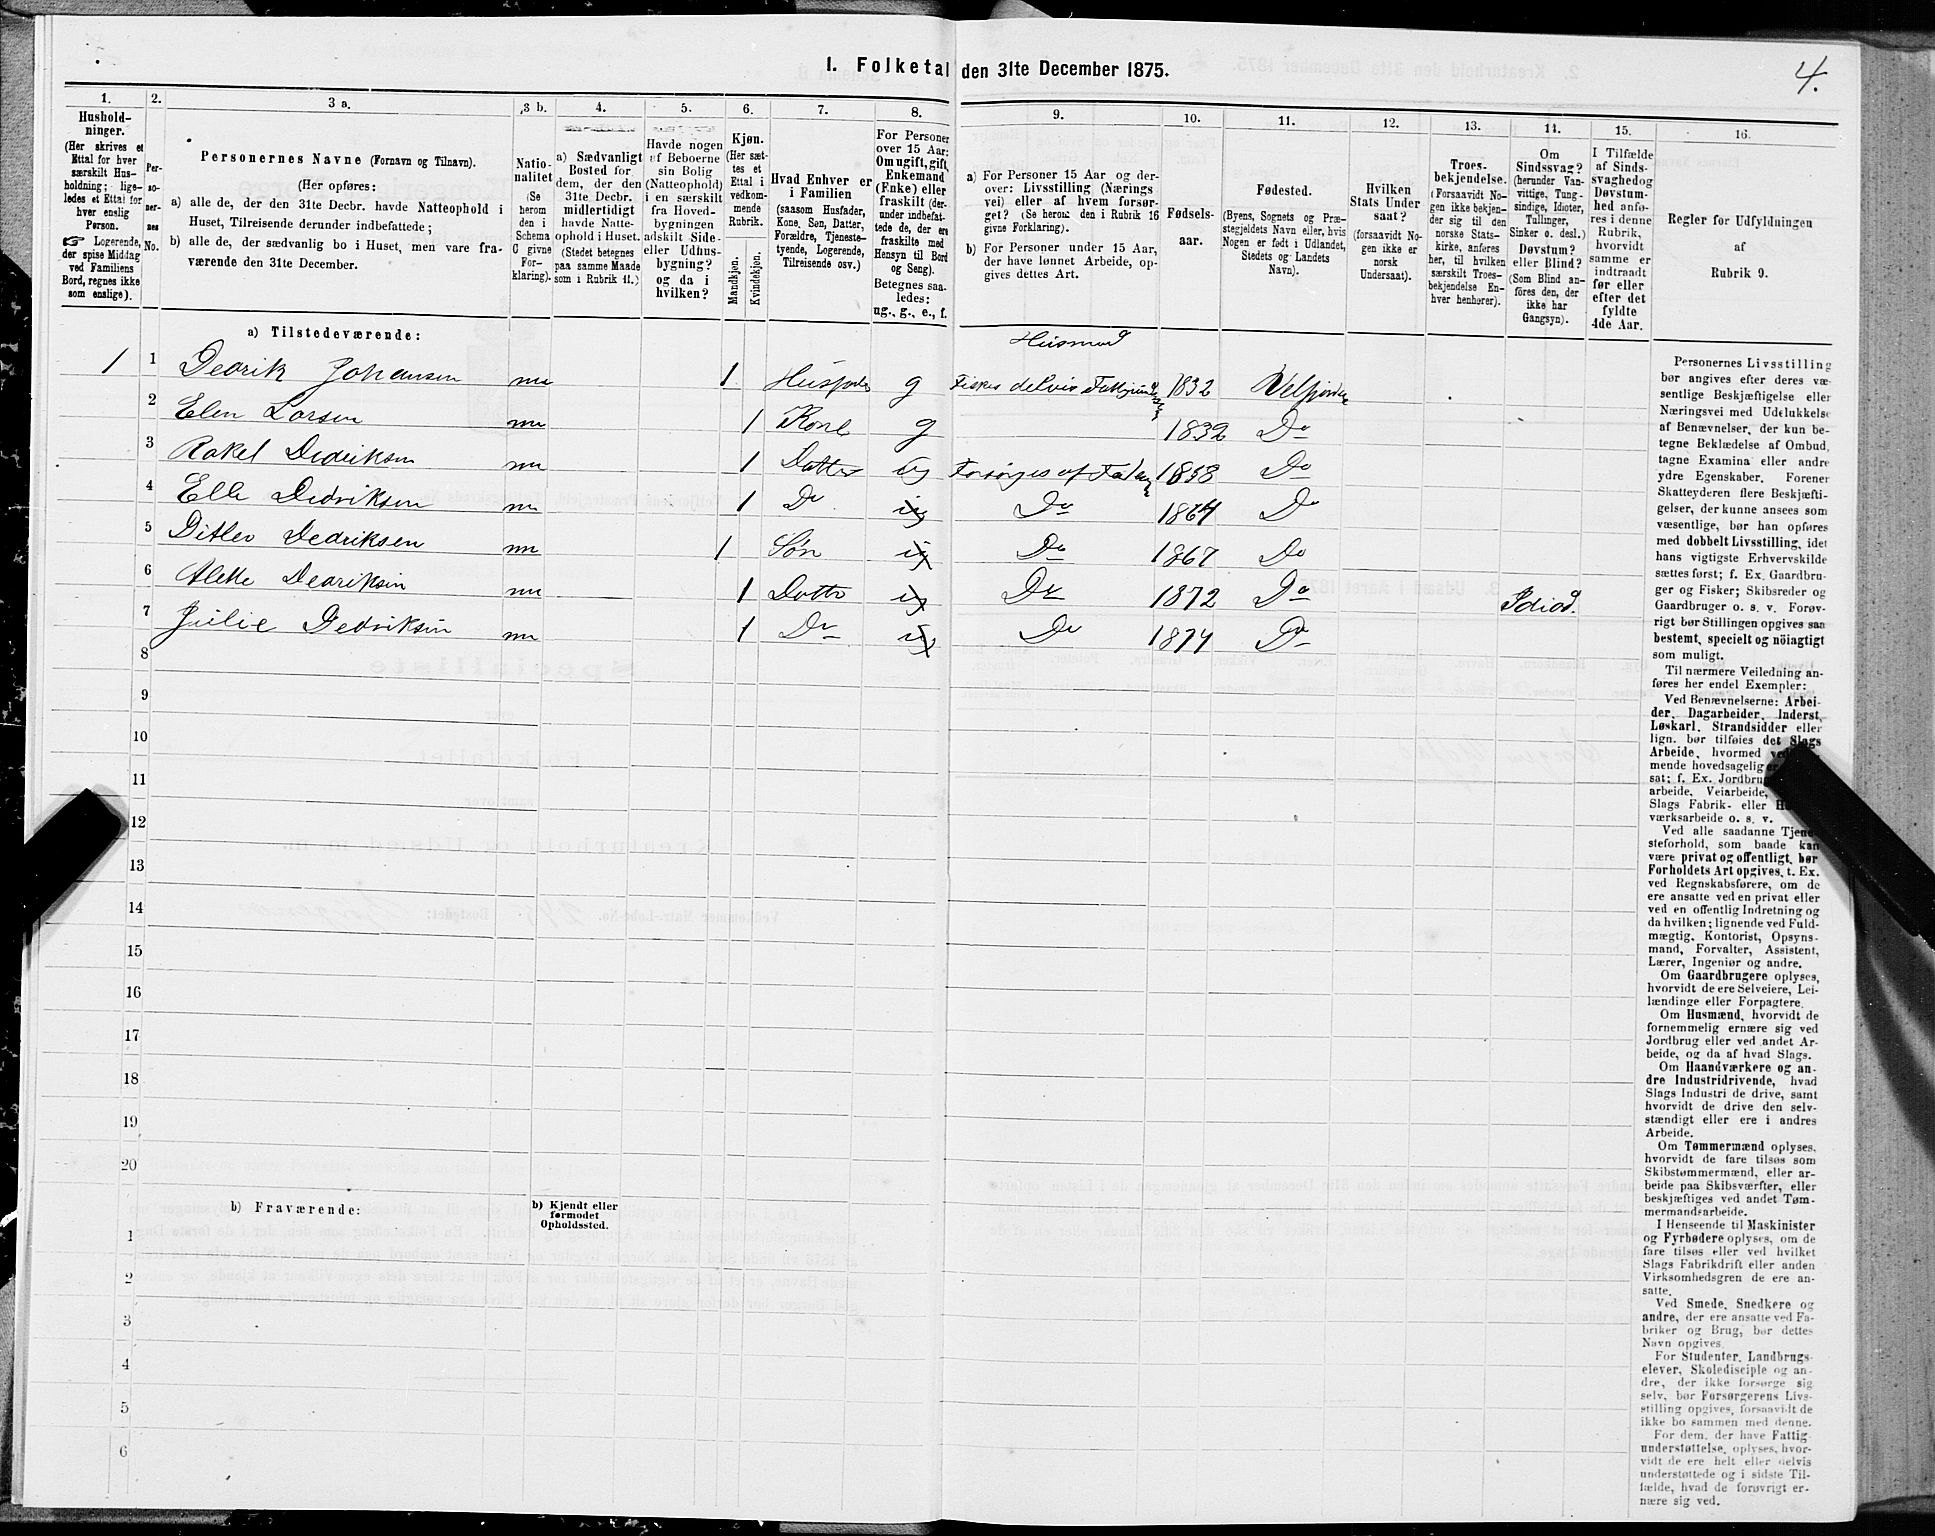 4.
I. Folketal den 31te December 1875.
1.
Hushold-
ninger.
(Her skrives et
Ettal for hver
særskilt Hus-
holdning; lige-
ledes et Ettal for
hver enslig
Person.
☞ Logerende,
der spise Middag
ved Familiens
Bord, regnes ikke
som enslige).
2.
Per-
so-
ner-
nes
No.
3 a.
Personernes Navne (Fornavn og Tilnavn).
(Her opføres:
a) alle de, der den 31te Decbr. havde Natteophold i
Huset, Tilreisende derunder indbefattede;
b) alle de, der sædvanlig bo i Huset, men vare fra-
værende den 31te December.
3 b.
Natio-
nalitet
(Se
herom
den i
Schema
C givne
For-
klaring).
4.
a) Sædvanligt
Bosted for
dem, der den
31te Decbr.
midlertidigt
havde Natte-
ophold i Huset.
(Stedet betegnes
paa samme Maade
som i Rubrik 11.)
5.
Havde nogen
af Beboerne
sin Bolig
(Natteophold)
i en særskilt
fra Hoved-
bygningen
adskilt Side-
eller Udhus-
bygning?
og da i
hvilken?
6.
Kjøn.
(Her sæt-
tes et
Ettal i
vedkom-
mende
Rubrik.
Mandkjøn.
Kvindekjøn.
7.
Hvad Enhver er
i Familien
(saasom Husfader,
Kone, Søn, Datter,
Forældre, Tjeneste-
tyende, Logerende,
Tilreisende osv.)
8.
For Personer
over 15 Aar:
Om ugift, gift
Enkemand
(Enke) eller
fraskilt (der-
under indbefat-
tede de, der ere
fraskilte med
Hensyn til Bord
og Seng).
Betegnes saa-
ledes:
ug., g., e., f.
9.
a) For Personer 15 Aar og der-
over: Livsstilling (Nærings
vei) eller af hvem forsør-
get? (Se herom den i Rubrik 16
givne Forklaring).
b) For Personer under 15 Aar,
der have lønnet Arbeide, op-
gives dettes Art.
10.
Fødsels-
aar.
11.
Fødested.
(Byens, Sognets og Præ-
stegjeldets Navn eller, hvis
Nogen er født i Udlandet,
Stedets og Landets
Navn).
12.
Hvilken
Stats Under
saat?
(forsaavidt No-
gen ikke er
norsk
Undersaat).
13.
Troes-
bekjendelse.
(Forsaavidt No-
gen ikke bekjen-
der sig til den
norske Stats-
kirke, anføres
her, til hvilken
særskilt Troes-
bekjendelse En-
hver henhører).
14.
Om
Sindssvag?
(herunder Van-
vittige, Tung-
sindige, Idioter,
Tullinger,
Sinker o. desl.)
Døvstum?
eller Blind?
(Som Blind an-
föres den, der
ikke har
Gangsyn).
15.
I Tilfælde
af Sinds-
svaghed og
Døvstum-
hed anfø-
res i denne
Rubrik,
hvorvidt
samme er
indtraadt
før eller
efter det
fyldte
4de Aar.
16.
Regler for Udfyldningen
af
Rubrik 9.
a) Tilstedeværende:
Husmand
1 1 Dedrik Johansen nn 1 Husfader g Fisker delvis 1832 Velfjorden
2 Elen Larsen nn 1 Kone g 1832 Do
3 Rakel Dedriksen nn 1 Datter ug Forsørges af Faderen 1858 Do
4 Elle Dedriksen nn 1 Do ug Do 1864 Do
5 Ditlev Dedriksen nn 1 Søn ug Do 1867 Do
6 Alette Dedriksen nn 1 Datter ug Do 1872 Do Idiod.
7 Julie Dedriksen nn 1 Do ug Do 1874 Do
8
9
10
11
12
13
14
15
16
17
18
19
20
b) Fraværende:
b) Kjendt eller
formodet
Opholdssted.
1
2
3
4
5
6
Personernes Livsstilling
bør angives efter deres væ-
sentlige Beskjæftigelse eller
Næringsvei med Udelukkelse
af Benævnelser, der kun be-
tegne Beklædelse af Ombud,
tagne Examina eller andre
ydre Egenskaber. Forener
Skatteyderen flere Beskjæfti-
gelser, der kunne ansees som
væsentlige, bør han opføres
med dobbelt Livsstilling, idet
hans vigtigste Erhvervskilde
sættes først; f. Ex. Gaardbru-
ger og Fisker; Skibsreder og
Gaardbruger o. s. v. Forøv-
rigt bør Stillingen opgives saa
bestemt, specielt og nöiagtigt
som muligt.
Til nærmere Veiledning an-
føres her endel Exempler:
Ved Benævnelserne: Arbei-
der, Dagarbeider, Inderst,
Løskarl, Strandsidder eller
lign. bør tilføies det Slags
Arbeide, hvormed
mende hovedsagelig er
sat; f. Ex. Jordbrug
arbeide, Veiarbeide,
Slags Fabrik- eller
værksarbeide o. s. v.
Ved alle saadanne Tjene-
steforhold, som baade kan
være privat og offentligt, bør
Forholdets Art opgives, t. Ex.
ved Regnskabsførere, om de
ere ansatte ved en privat eller
ved en offentlig Indretning og
da hvilken; lignende ved Fuld-
mægtig, Kontorist, Opsyns-
mand, Forvalter, Assistent,
Lærer, Ingeniør og andre.
Om Gaardbrugere oplyses,
hvorvidt de ere Selveiere, Lei-
lændinge eller Forpagtere.
Om Husmænd, hvorvidt de
fornemmelig ernære sig ved
Jordbrug eller ved andet Ar-
beide, og da af hvad Slags.
Om Haandværkere og an-
dre Industridrivende, hvad
Slags Industri de drive, samt
hvorvidt de drive den selv-
stændigt eller ere i andres
Arbeide.
Om Tømmermænd oplyses,
hvorvidt de fare tilsøs som
Skibstømmermænd, eller ar-
beide paa Skibsværfter, eller
beskjæftiges ved andet Tøm-
mermandsarbeide.
I Henseende til Maskinister
og Fyrbødere oplyses, om de
fare tilsøs eller ved hvilket
Slags Fabrikdrift eller anden
Virksomhedsgren de ere an-
satte.
Ved Smede, Snedkere og
andre, der ere ansatte ved Fa-
briker og Brug, bør dettes
Navn opgives.
For Studenter, Landbrugs-
elever, Skoledisciple og an-
dre, der ikke forsørge sig
selv, bør Forsørgerens Livs-
stilling opgives, forsaavidt de
ikke bo sammen med denne.
For dem, der have Fattig-
understøttelse, oplyses, hvor-
vidt de ere helt eller delvis
understøttede og i sidste Til-
fælde, hvad de forøvrigt er-
nære sig ved.